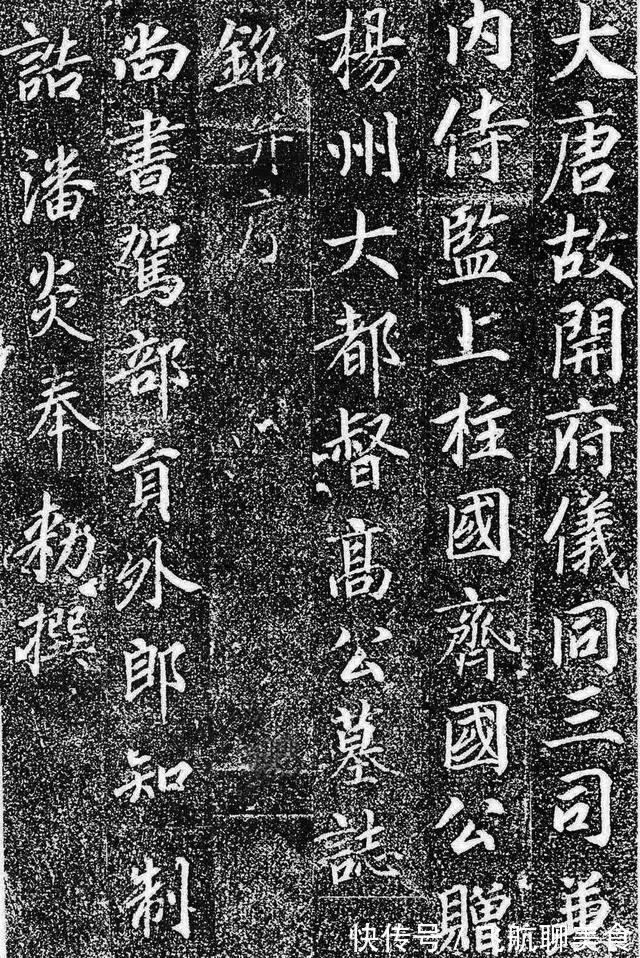 大唐故開府儀同三司兼
内侍監上柱國齊國公贈
楊州大都督髙公墓誌
銘并序
尚書駕部員外郎知制
誥潘炎奉勑撰
快传号/飞航聊美食